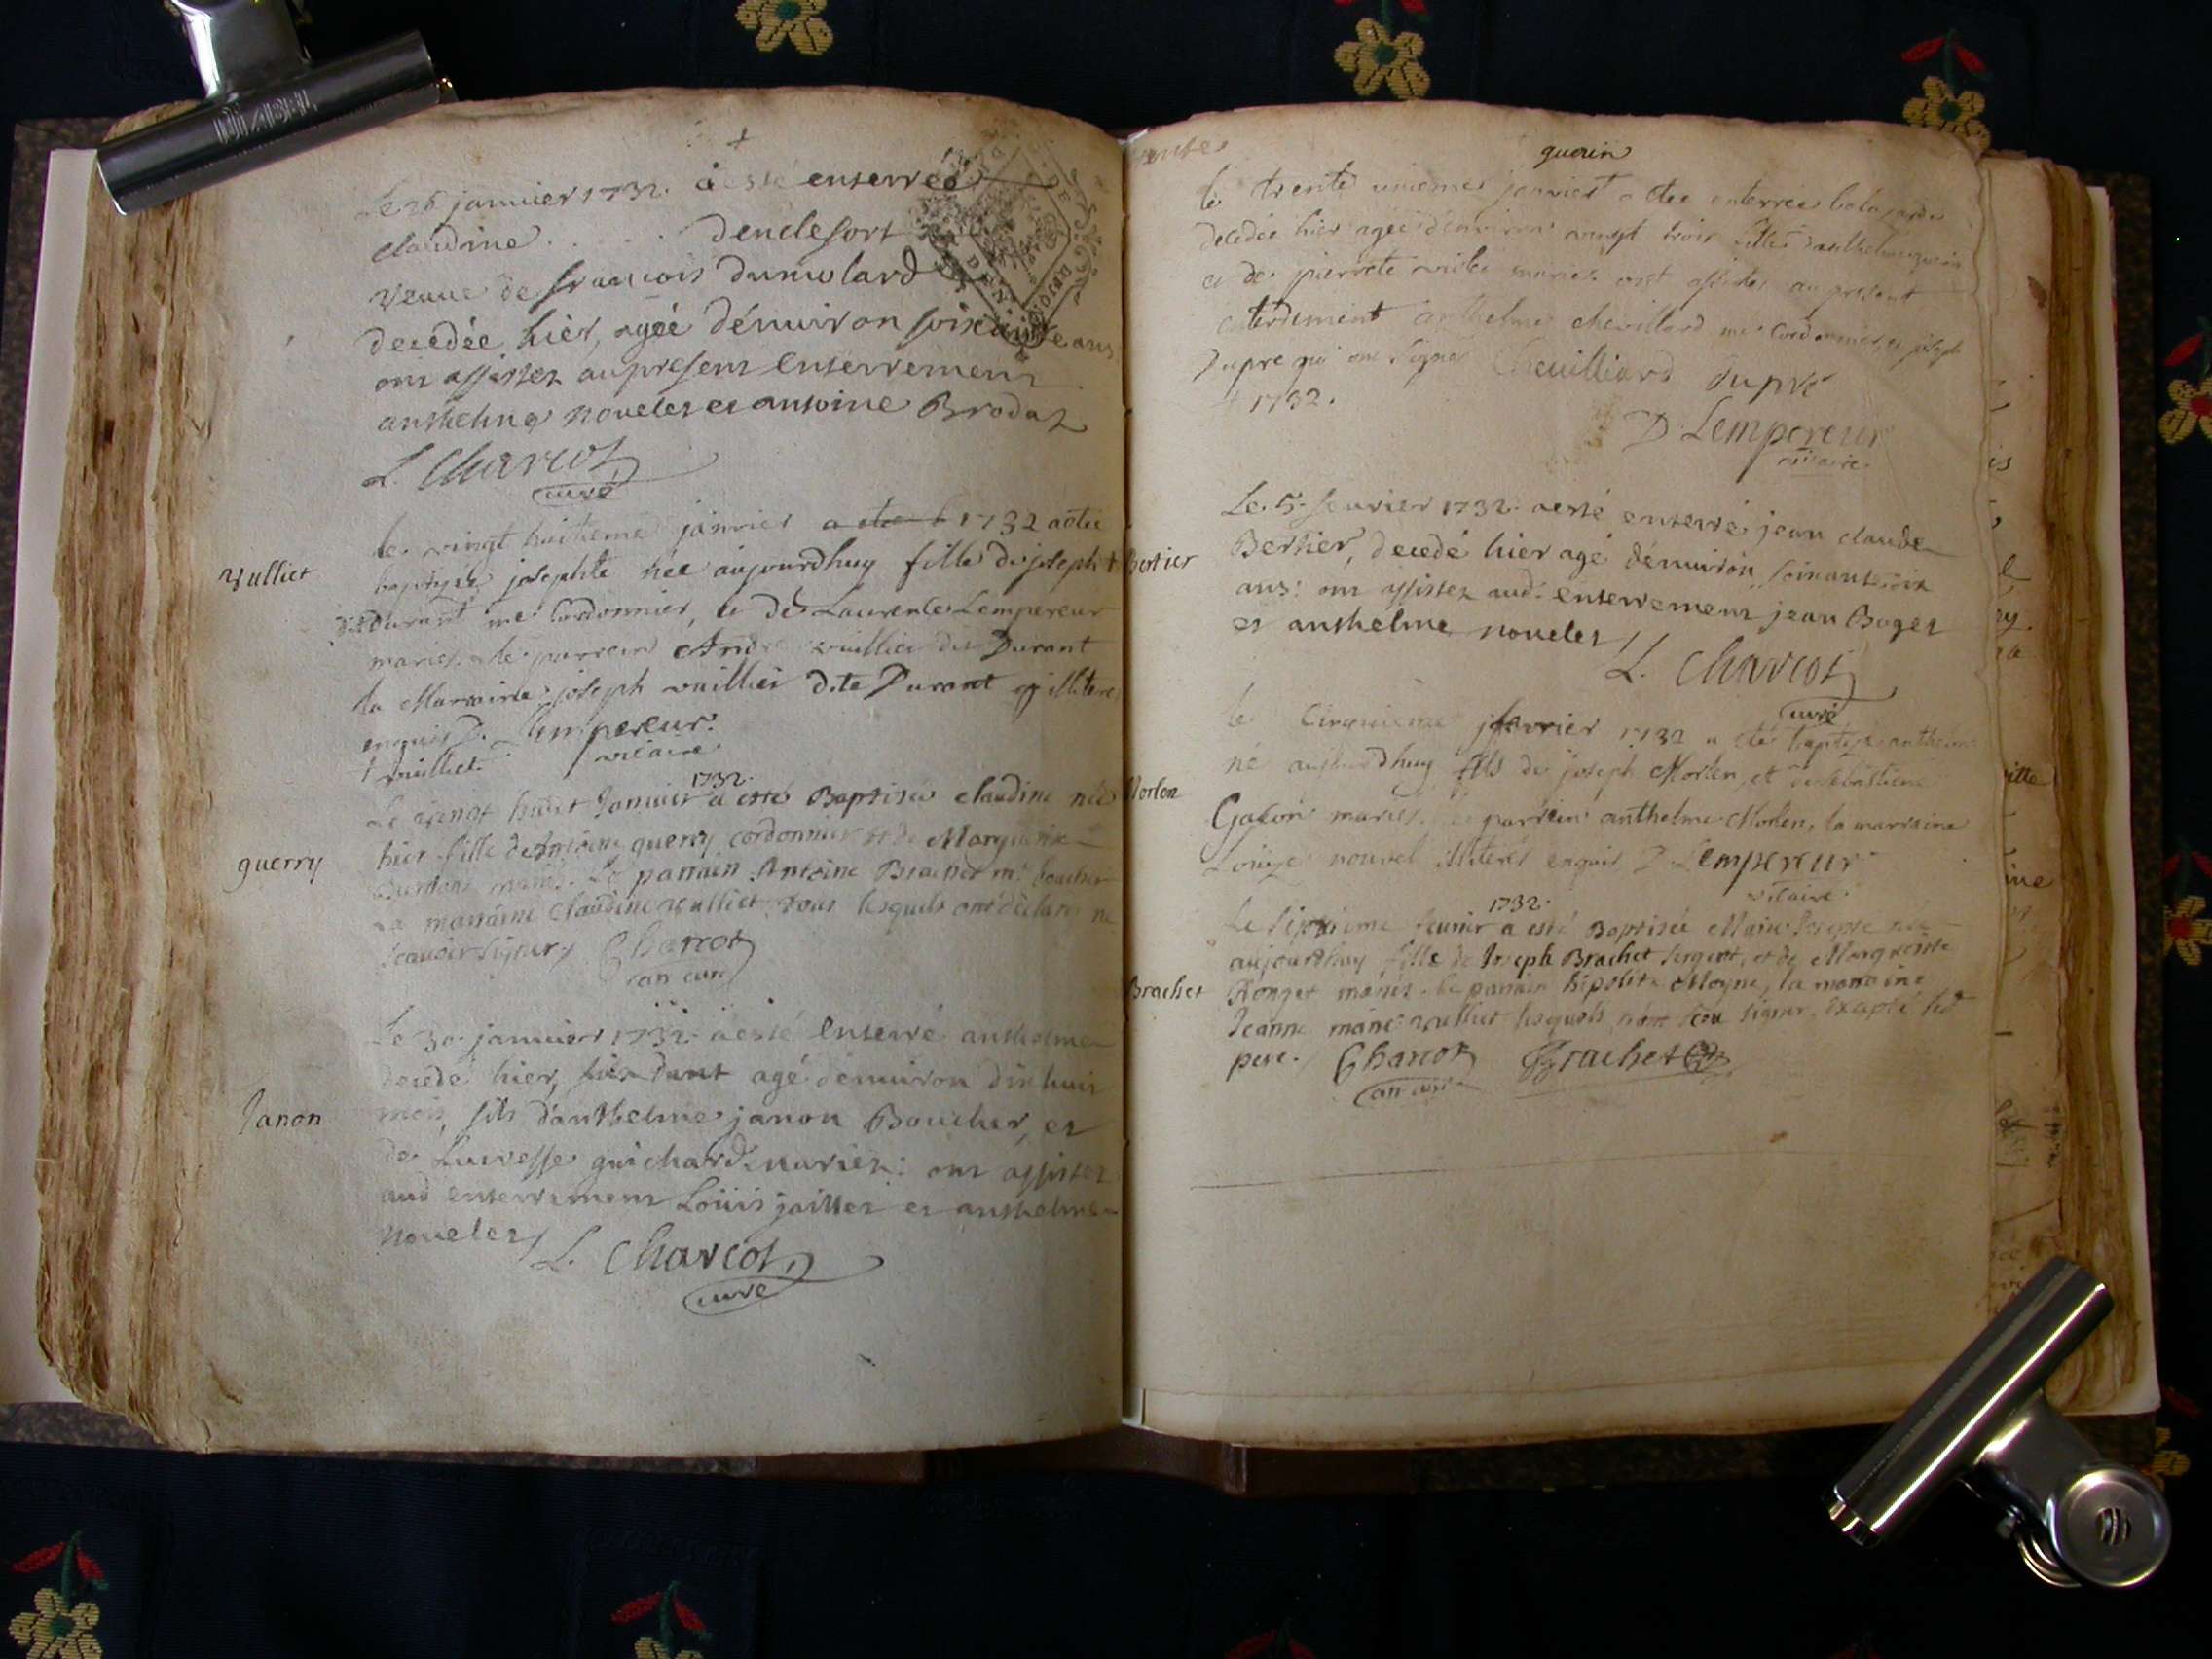 Le 26 januier 1732. a esté enterrée
claudine . . . . . dendesort
veuue de françois dumolard
decedée hier, agée d'enuiron soixante ans
ont assistez au present enterrement
anthelme nouelet et antoine Brodat
L. Charcot
curé
vulliet
le vingt huitieme janvier 1732 a etée
baptysée josephte née aujourdhuy fille de joseph
dit Durant me Cordonnier, et de Laurence Lempereur
mariez. le parrein André vuillier dit Durant
la Marraine joseph vuillier dite Durant illiteré
enquis D. Lempereur
vicaire
vuilliet
guerry
1732.
Le vingt huict Januier a esté Baptisée claudine née
hier fille de guerry cordonnier et de Marguerite
mariés. Le parrain Antoine Brachet me boucher
La marraine Claudine vulliet tous lesquels ont déclaré ne
scauoir signer Charcot
an curé
Janon
Le 30 januier 1732. a esté enterré anthelme
decedé hier, agé d'enuiron dix huit
mois, fils d'anthelme janon Boucher, et
de Lucresse guichard mariez: ont assistez
aud enterrement Loüis jaillet et anthelme
nouelet L. Charcot
curé
guerin
le trente unieme janvier a etee enterrée
decedée hier agée d'environ vingt trois filles d'anthelme guerin
et de pierrete mariez ont assistez au present
enterrement anthelme chevillard me Cordonnier, et joseph
Dupre qui ont signez Cheuilliard dupré
1732.
D. Lempereur
vicaire
Bertier
Le 5. feurier 1732. a esté enterré jean claude
Bertier, decedé hier agé d'enuiron
ans: ont assistez aud. enterrement jean Buget
et anthelme nouelet
L. Charcot
curé
Morlon
le Cinquieme fevrier 1732 a été baptisé anthelme
né aujourdhuy fils de joseph Morlen et de sebastiene
Galon mariez. le parrein anthelme Morlen, la marraine
Loüize nouvel illiterés enquis D Lempereur
vicaire.
Brachet
1732.
Le septieme feurier a esté Baptisée Marie Josepte née
aujourdhuy fille de Joseph Brachet sergent, et de Marguerite
Ronget mariez. le parrain hipolite Moyne, la marraine
Jeanne marie vulliet lesquels n'ont sceu signer, excepté led
pere. Charcot Brachet
an curé